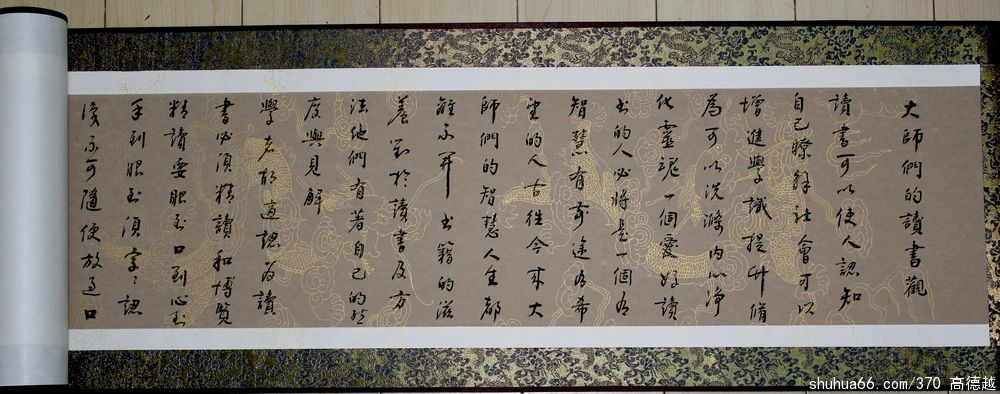 大師們的讀書觀
讀書可以使人認知
自己瞭解社會可以
增進學識提升修
為可以洗滌內心淨
化靈魂一個愛好讀
書的人必將是一個有
智慧有前途有希
望的人古往今來大
師們的智慧人生都
離不開書籍的滋
養對於讀書及方
法他們有著自己的態
度與見解
學者胡適認為讀
書必須精讀和博覽
精讀要眼到口到心到
手到眼到須字字認
清不可隨便放過口
shuhua66.com/370 高德越